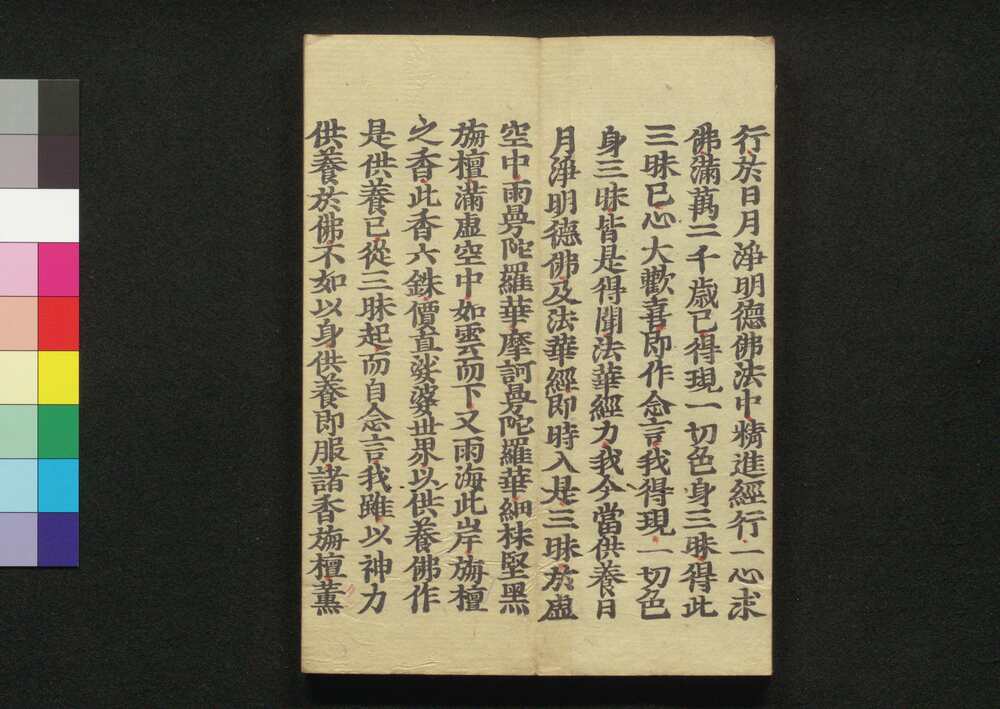 行於日月淨明德佛法中精進經行一心求
佛滿萬二千歲已得現一切色身三昧得此
三昧已心大歡喜即作念言我得現一切色
身三昧皆是得聞法華經力我今當供養日
月淨明德佛及法華經即時入是三昧於虛
空中雨曼陀羅華摩訶曼陀羅華細抹堅黑
旃檀滿虛空中如雲而下又雨海此岸旃檀
之香此香六銖價直娑婆世界以供養佛作
是供養已從三昧起而自念言我雖以神力
供養於佛不如以身供養即服諸香旃檀薰